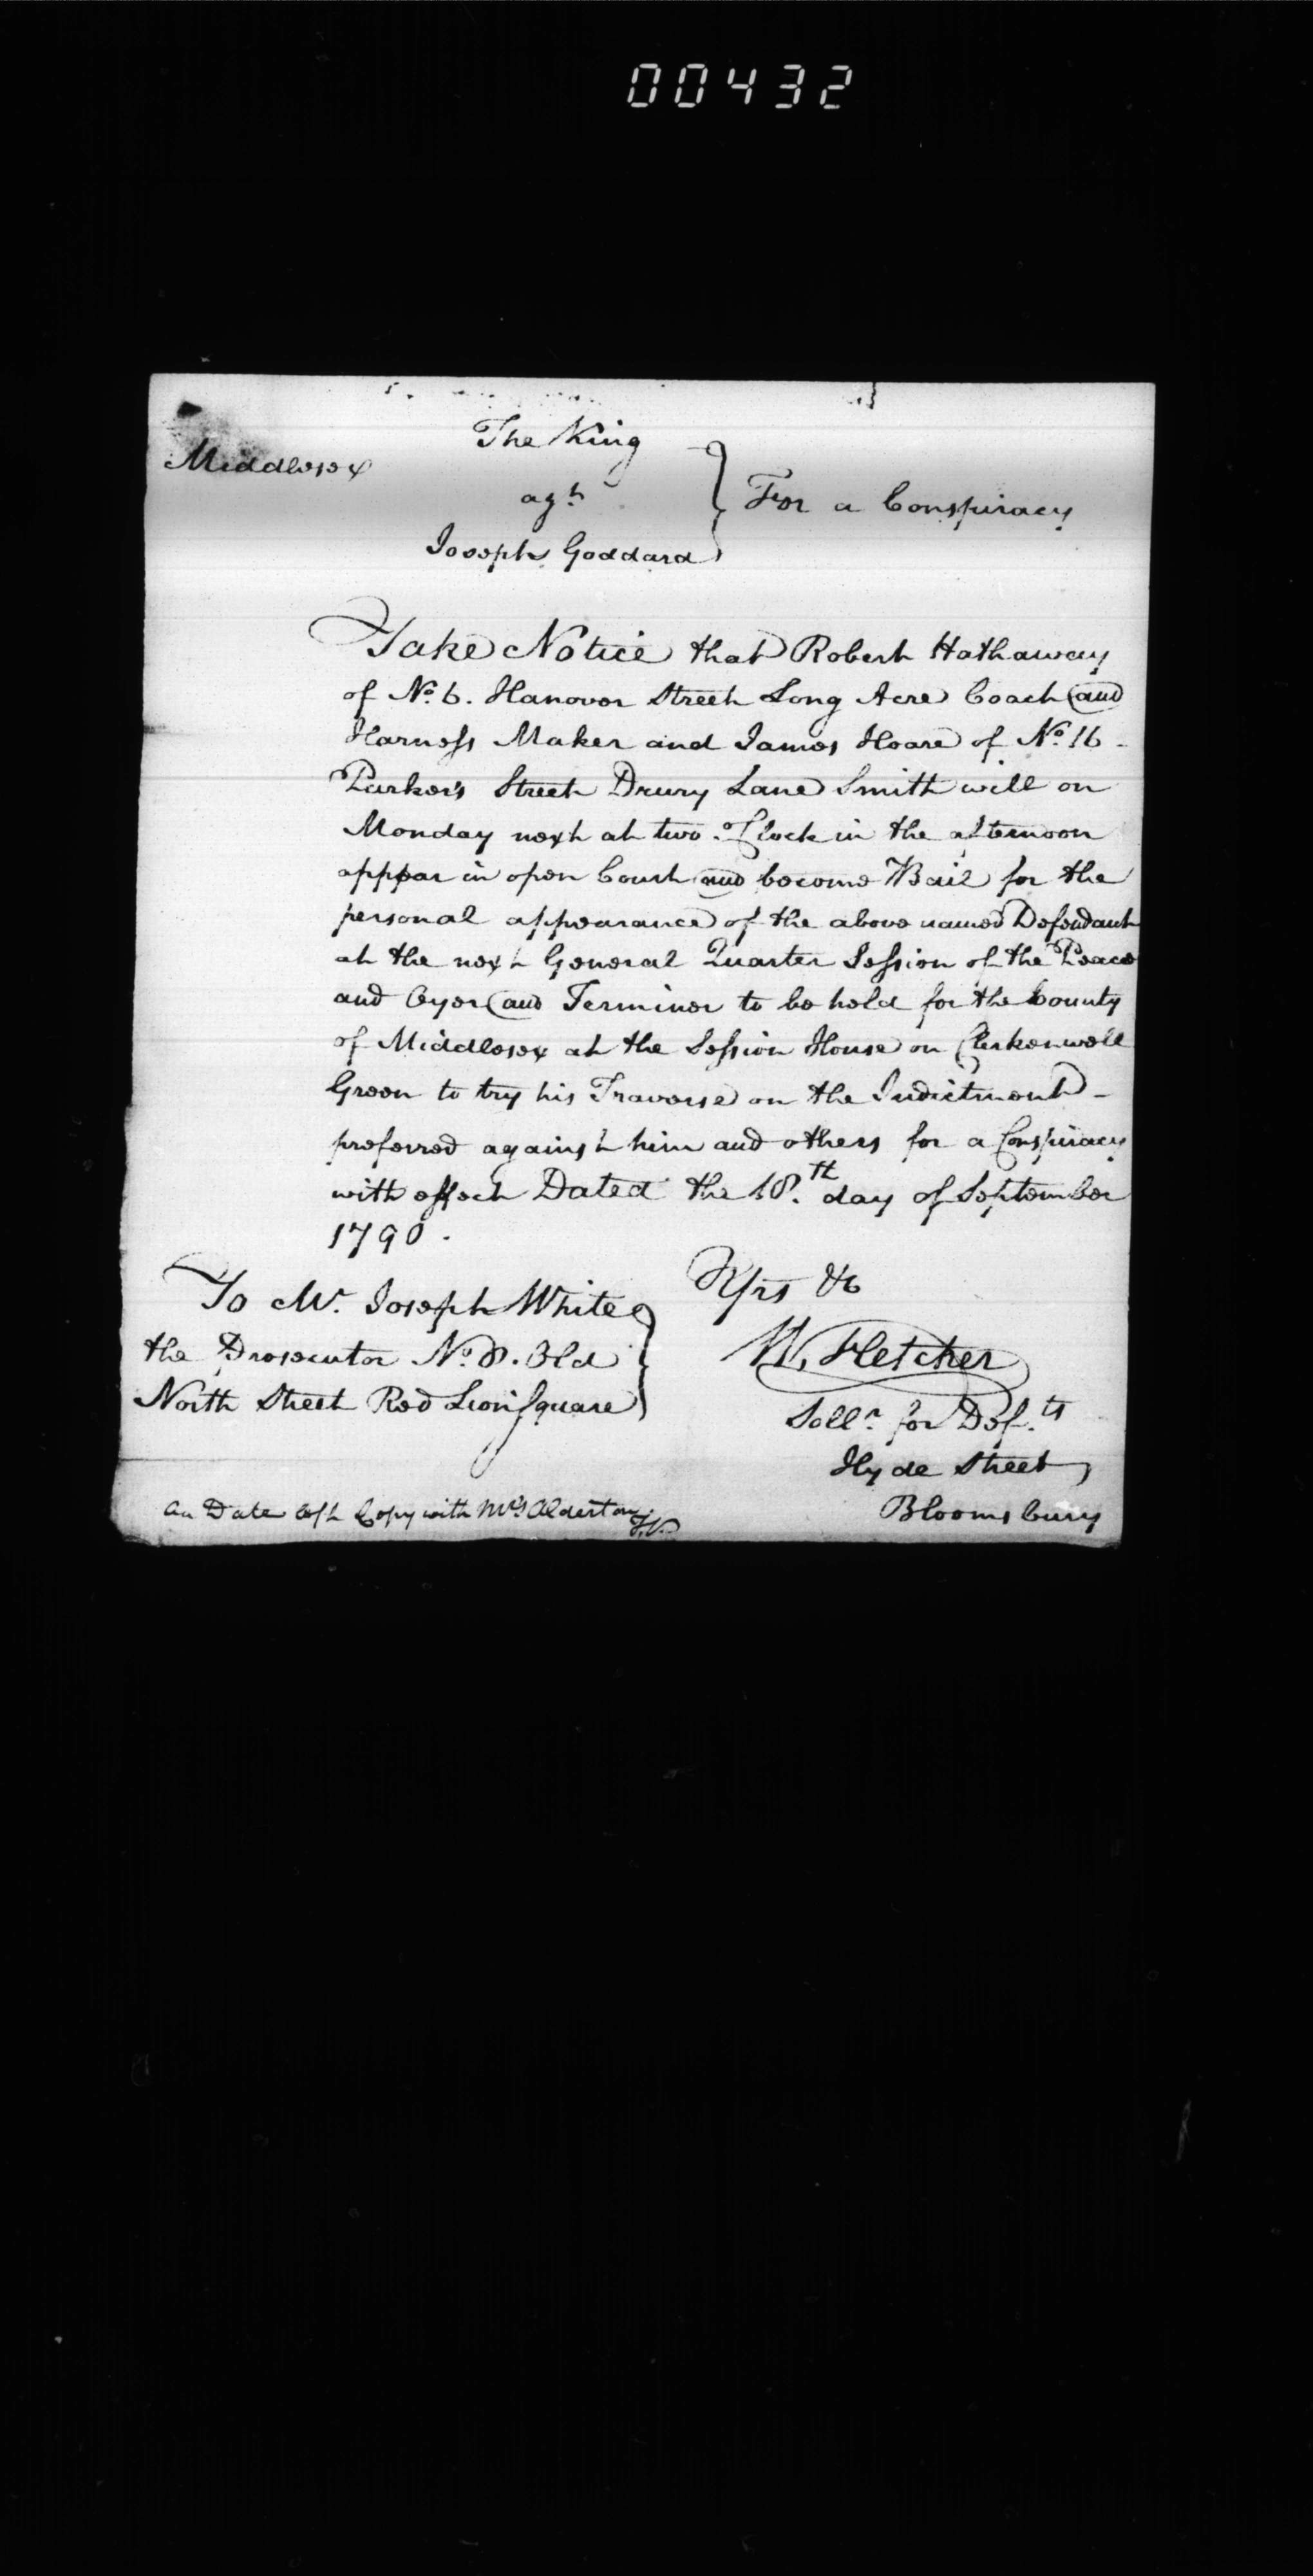 00432
The King
Middlesex
agt
For a Conspiracy
Joseph Goddard
Take Notice that Robert Hathaway
of No. 6. Hanover Street Long Acre Coach and
Harness Maker and James Hoare of No. 16 -
Parker's Street Drury Lane Smith will on
Monday next at two o'Clock in the afternoon
appear in open Court and become Bail for the
personal appearance of the above named Defendant
at the next General Quarter Session of the Peace
and Oyer and Terminer to be held for the County
of Middlesex at the Session House on Clerkenwell
Green to try his Traverse on the Indictment -
preferred against him and others for a Conspiracy
with effect Dated the 18.th day of September
1790.
Yrs &c
To Mr. Joseph White
the Prosecutor No. 8. Old
North Street Red Lion Square
W. Fletcher
Sollr. for Def.ts
Hyde Street
Bloomsbury
Date left Copy with Mrs Alderton